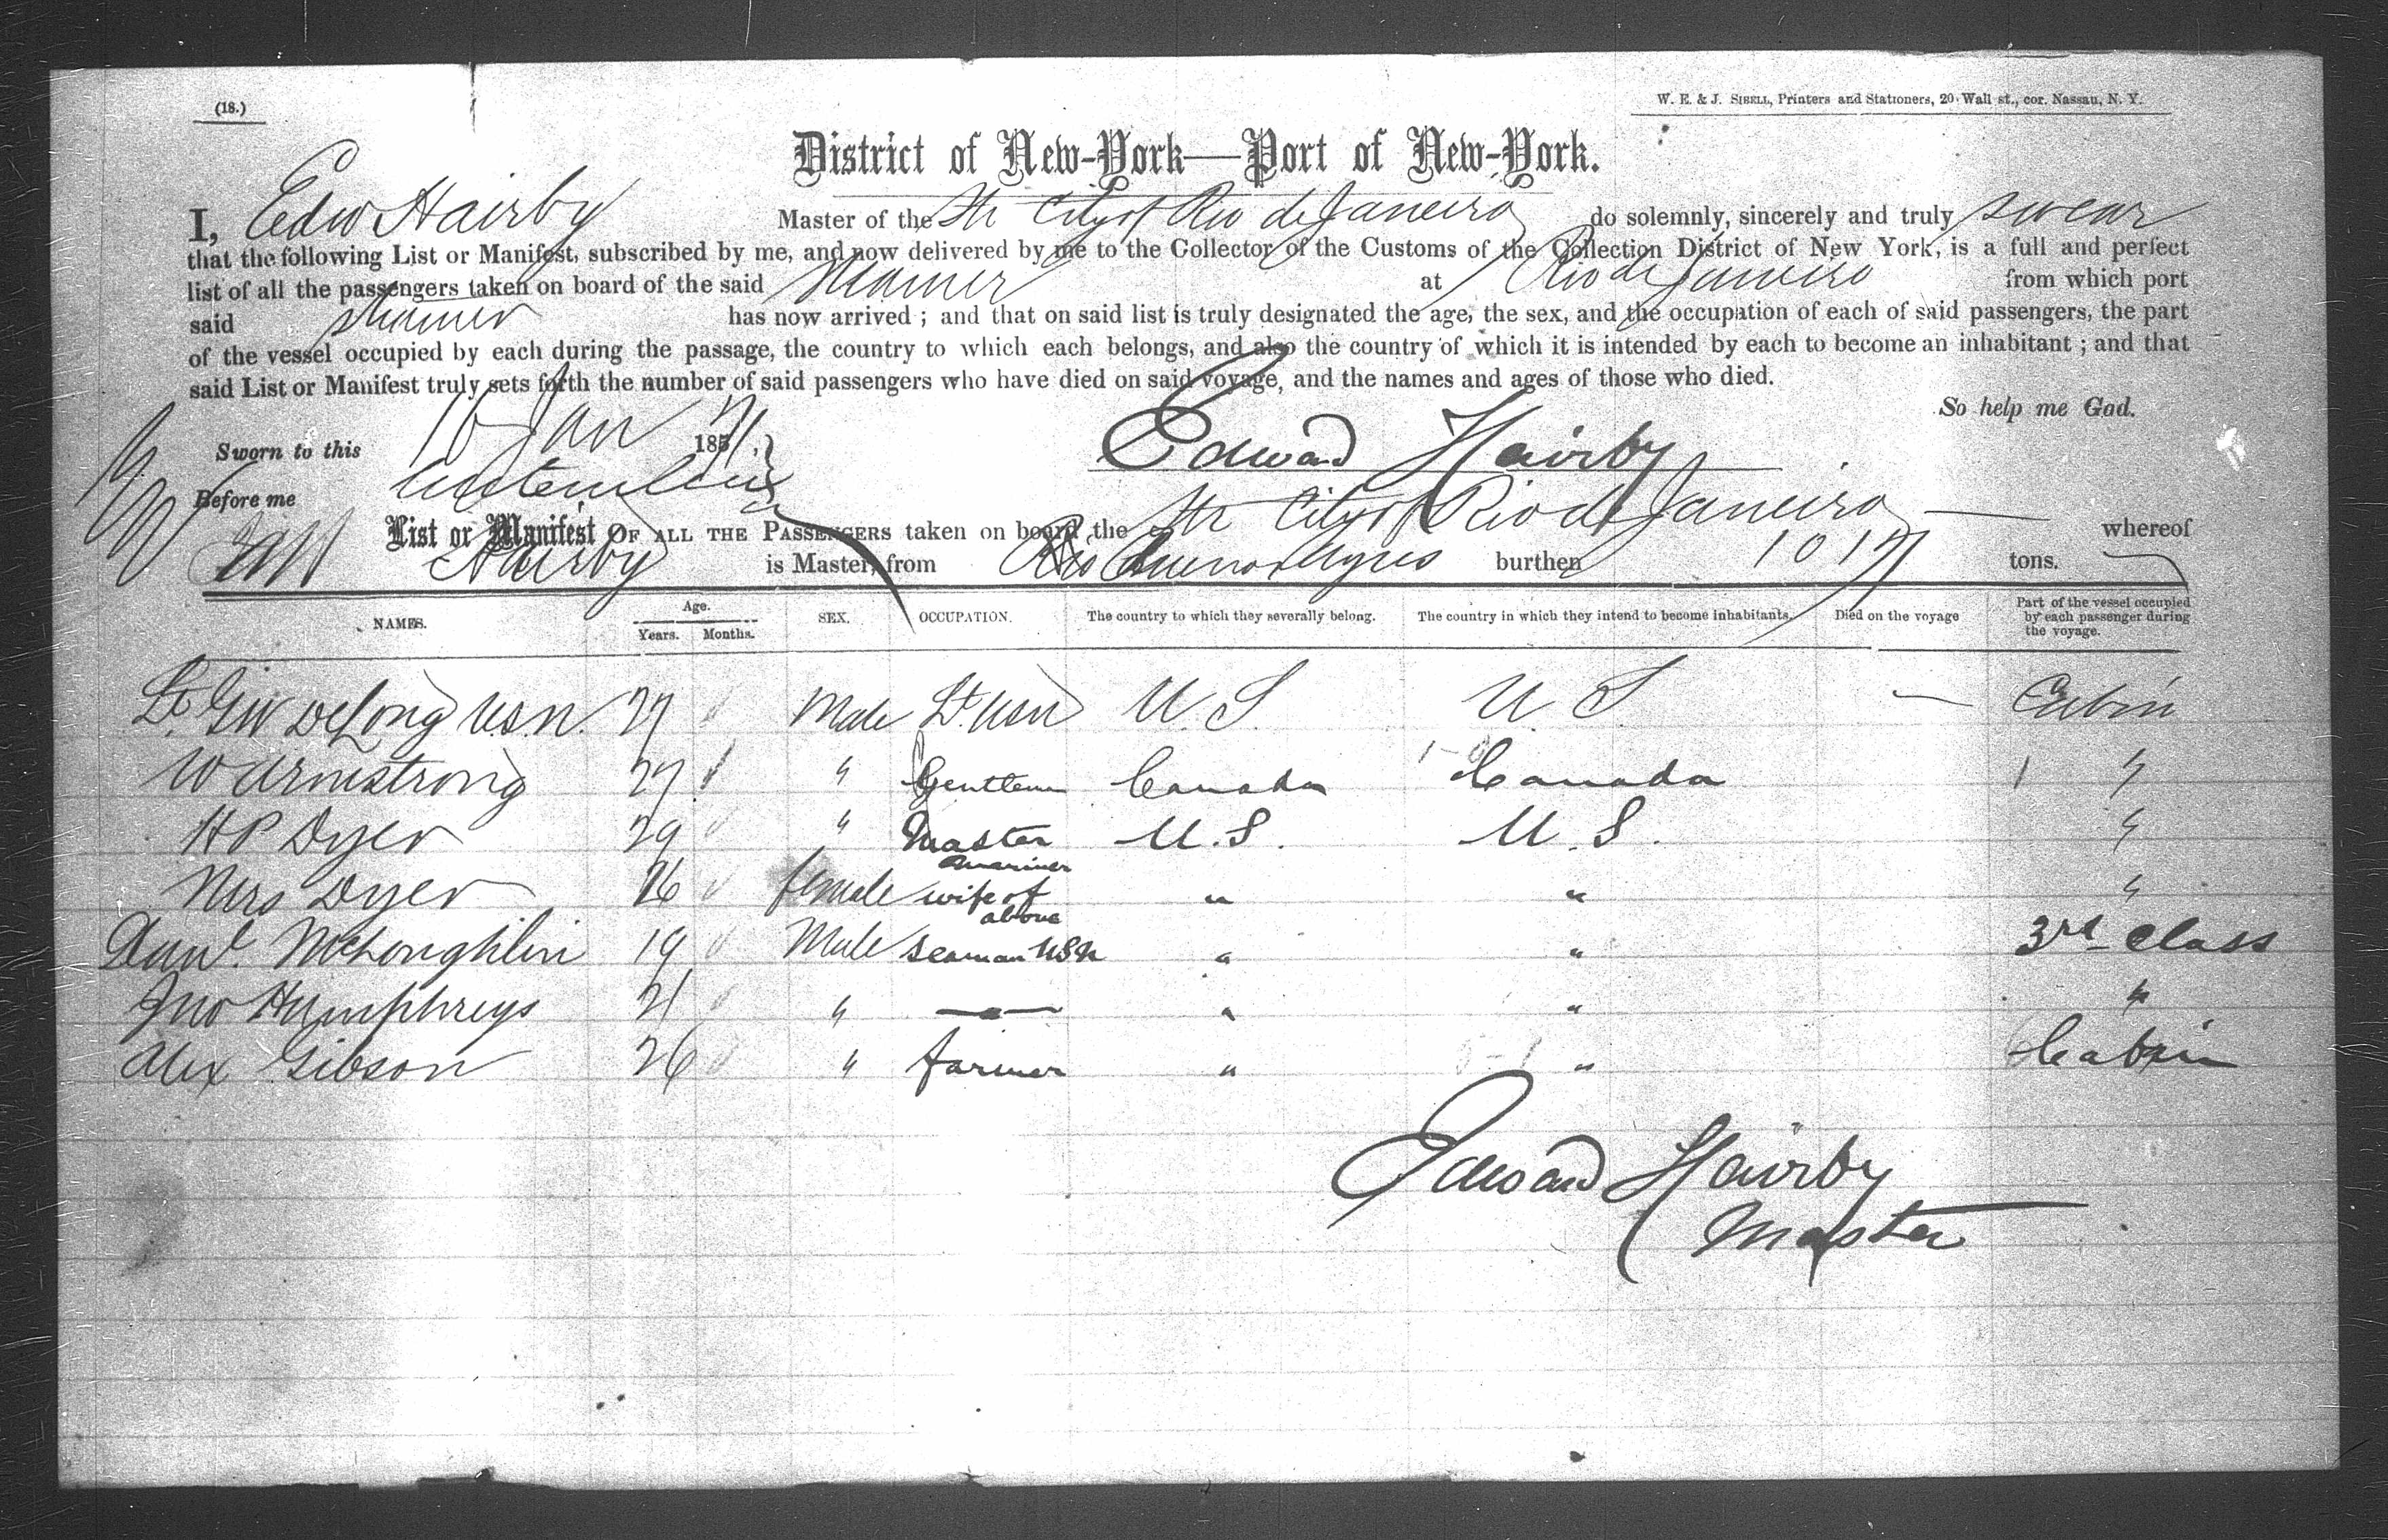 (18.)
W. E. & J. SIBELL, Printers and Stationers, 20 Wall st., cor. Nassau, N. Y.
District of New-York—Port of New-York.
I, Edw Hairby Master of the Str City of Rio de Janeiro do solemnly, sincerely and truly swear
that the following List or Manifest, subscribed by me, and now delivered by me to the Collector of the Customs of the Collection District of New York, is a full and perfect
list of all the passengers taken on board of the said Steamer at Rio de Janeiro from which port
said Steamer has now arrived ; and that on said list is truly designated the age, the sex, and the occupation of each of said passengers, the part
of the vessel occupied by each during the passage, the country to which each belongs, and also the country of which it is intended by each to become an inhabitant ; and that
said List or Manifest truly sets forth the number of said passengers who have died on said voyage, and the names and ages of those who died.
So help me God.
Sworn to this 16 Jan 1871,
Edward Hairby
Before me
List or Manifest OF ALL THE PASSENGERS taken on board the Str City of Rio de Janeiro whereof
Hairby is Master, from Buenos Ayres burthen 1017 tons.
NAMES. Age. Years. Months. SEX. OCCUPATION. The country to which they severally belong. The country in which they intend to become inhabitants. Died on the voyage Part of the vessel occupied by each passenger during the voyage.
Lt. GW DeLong U.S.N. 27 Male Lt. USN U.S U.S — Cabin
W Armstrong 27 " Gentlem Canada Canada "
HP Dyer 29 " Master mariner U.S. U.S. "
Mrs Dyer 26 female wife of above " " "
Danl. McLoughlin 19 Male Seaman USN " " 3rd class
Jno Humphreys 21 " — " " "
Alex Gibson 26 " farmer " " Cabin
Edward Hairby
Master